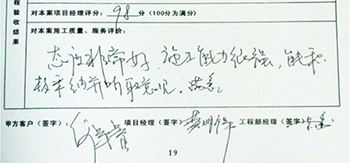 程验收结果
对本案项目经理评分：98 分（100分为满分）
对本案施工质量、服务评价：
态度非常好，施工能力很强，能和
纳并听取意见，
甲方客户（签字）： 项目经理（签字） 工程部经理（签字）：
19